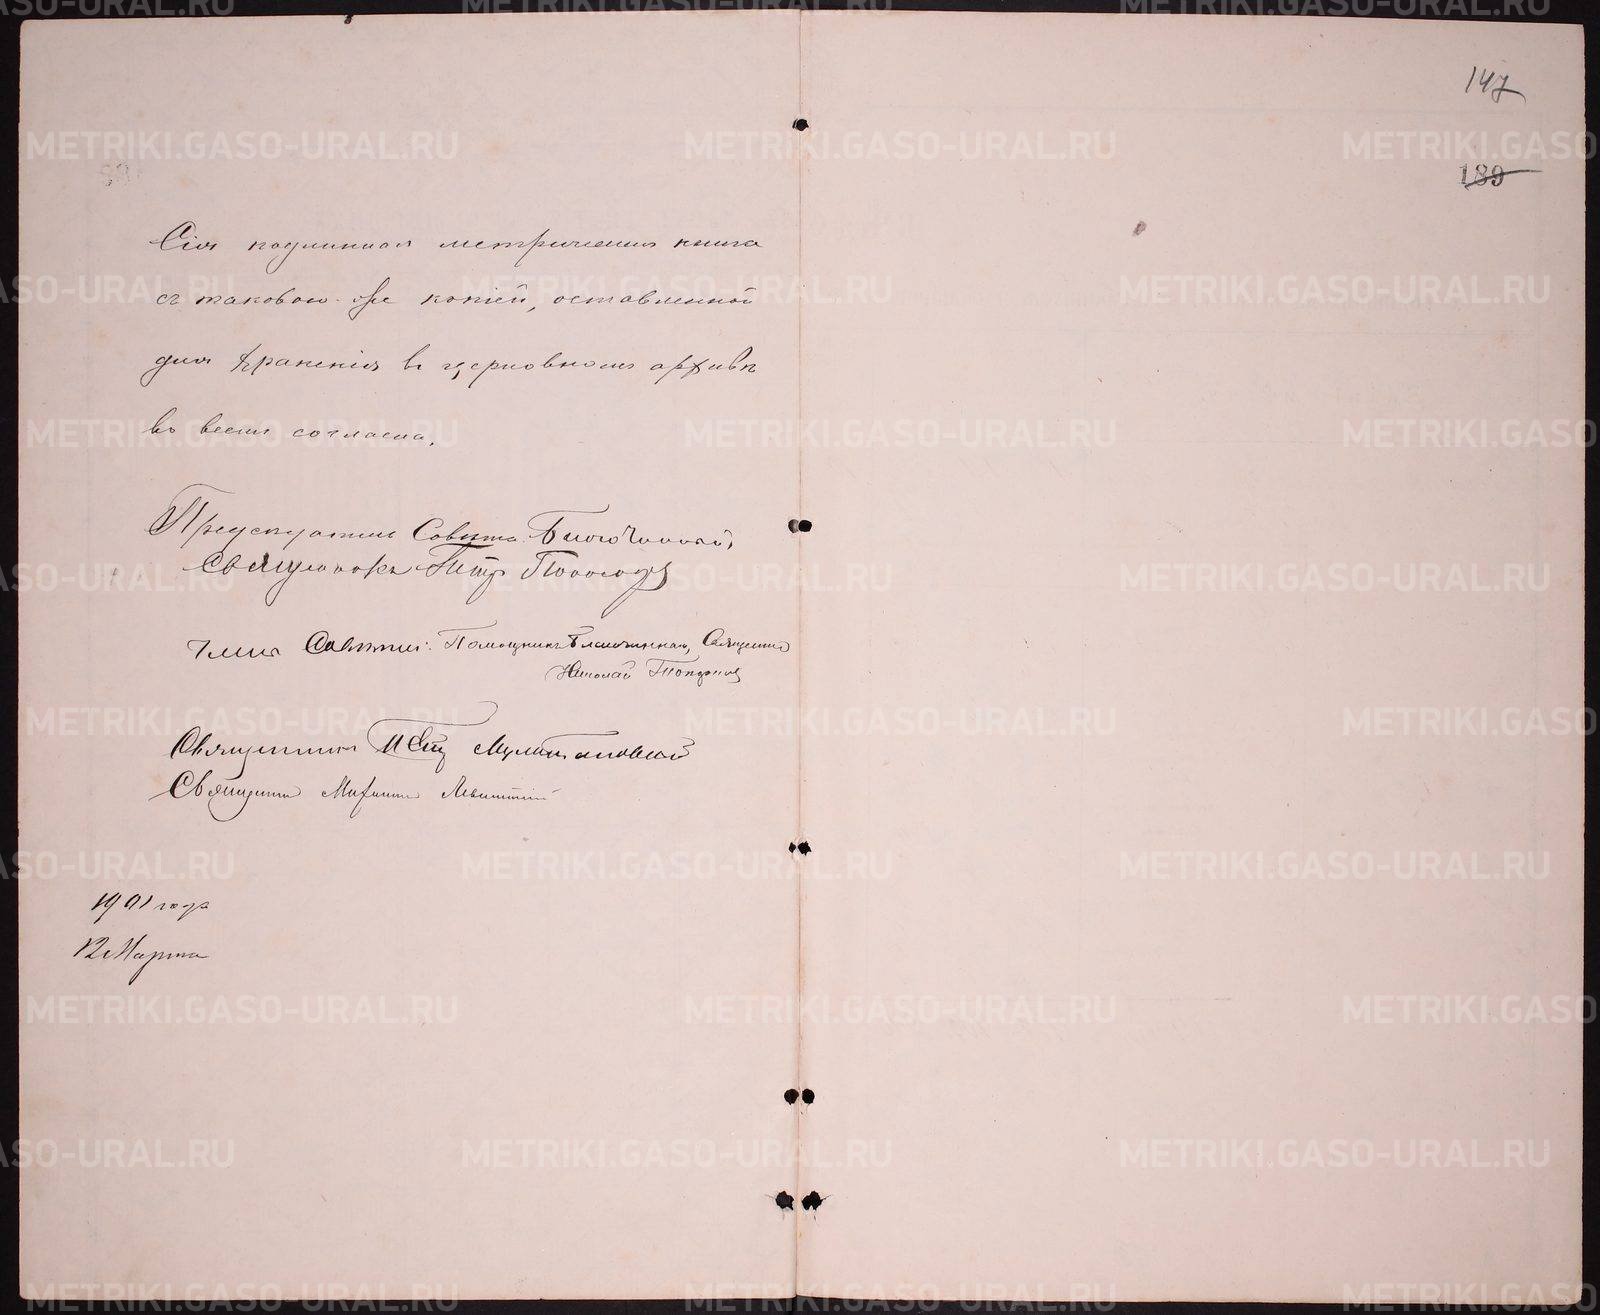 147
189
Сія подлинная метрическая книга
съ таковою-же копіей, оставленной
для храненія въ церковномъ архивѣ
во всемъ согласна.
Предсѣдатель Совѣта Благочинный,
Священникъ Петръ
Члены Совѣта: Помощникъ Благочиннаго, Священникъ
Николай Топорковъ
Священникъ Петръ
Священникъ Михаилъ Левитскій
1901 года
12 Марта
METRIKI.GASO-URAL.RU